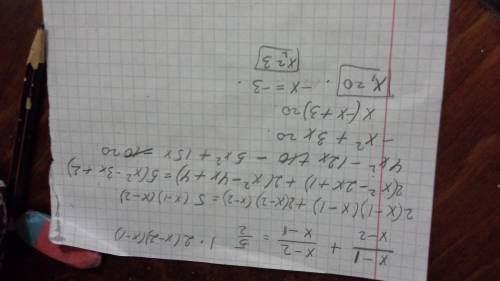 (x-1)/(x-2) + (x-2)/(x-1) = 5/2 | · 2(x-2)(x-1)
2(x-1)(x-1) + 2(x-2)(x-2) = 5(x-1)(x-2)
2(x²-2x+1) + 2(x²-4x+4) = 5(x²-3x+2)
4x² - 12x +10 - 5x² + 15x - 10 = 0
-x² + 3x = 0
x(-x+3) = 0
x₁=0 . -x = -3 .
x₂=3